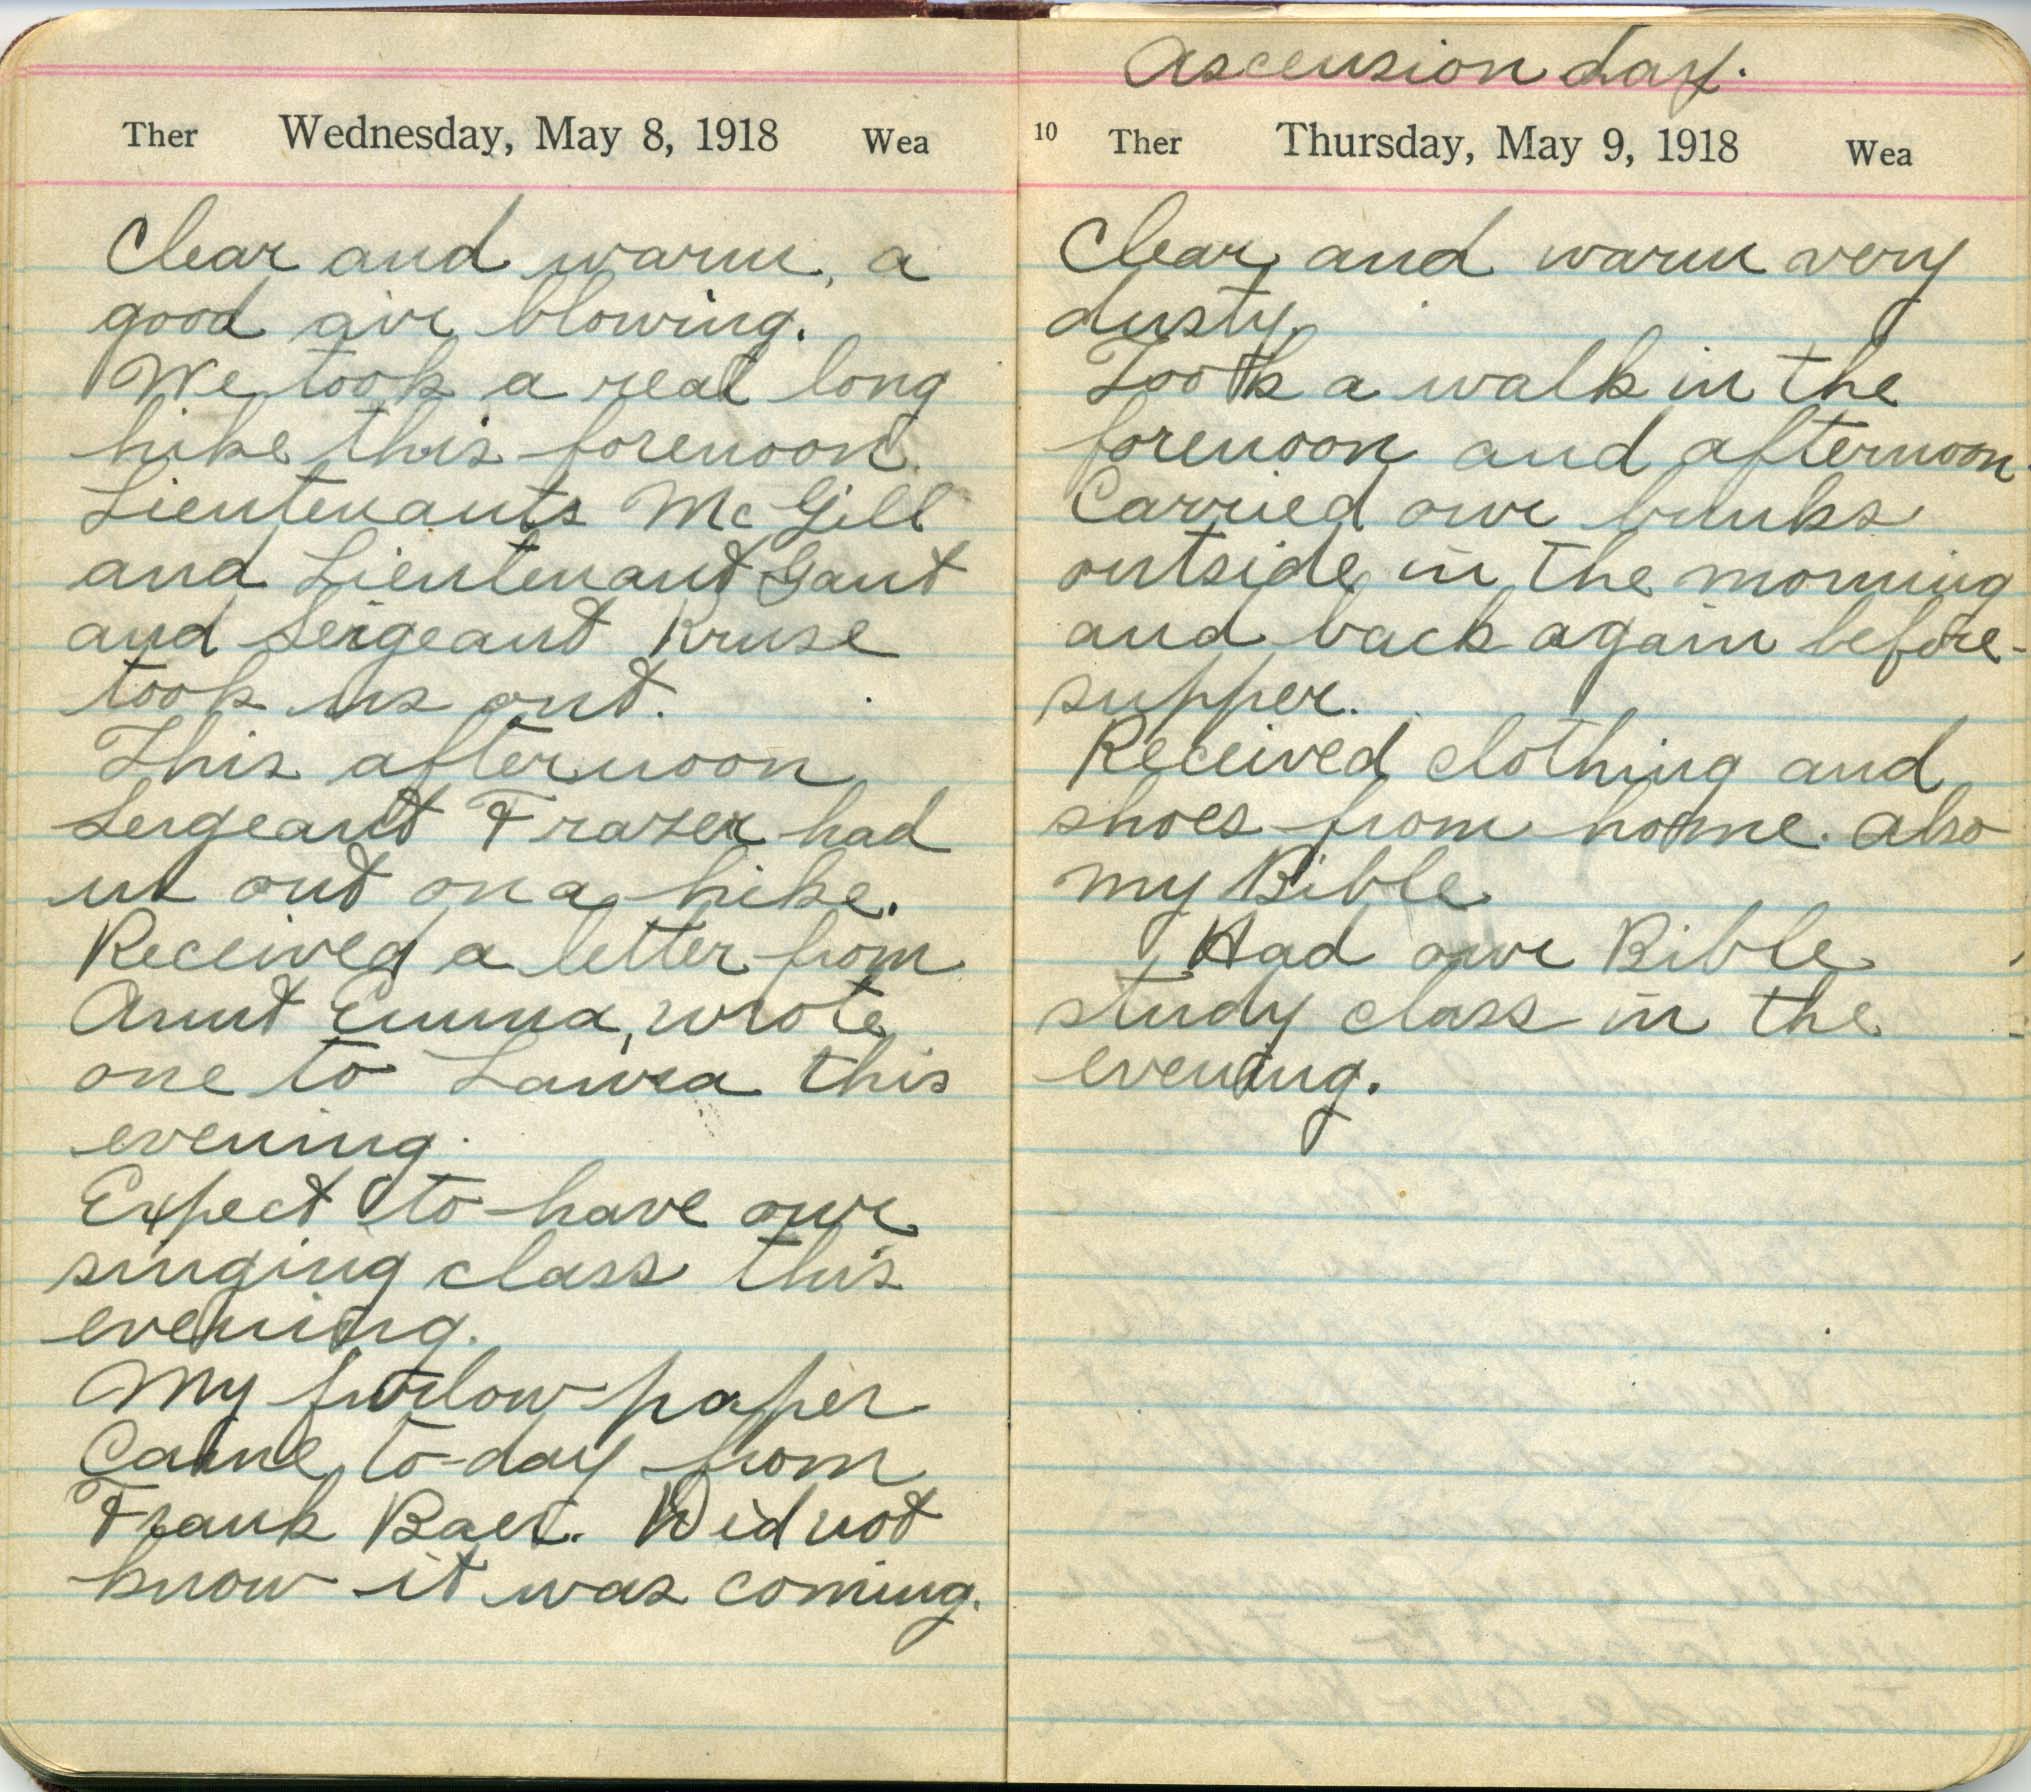 Ther Wednesday, May 8, 1918 Wea
Clear and warm, a
good air blowing.
We took a real long
hike this forenoon.
Lieutenants McGill
and Lieutenant Gant
and Sergeant Kruse
took us out.
This afternoon
Sergeant Frazer had
us out on a hike.
Received a letter from
Aunt Emma, wrote
one to Laura this
evening.
Expect to have our
singing class this
evening.
My furlow paper
Came to-day from
Frank Baer. Did not
know it was coming.
Ascension day.
10 Ther Thursday, May 9, 1918 Wea
Clear and warm very
dusty.
Took a walk in the
forenoon and afternoon.
Carried our bunks
outside in the morning
and back again before
supper.
Received clothing and
shoes from home. also
my Bible
Had our Bible
study class in the
evening.